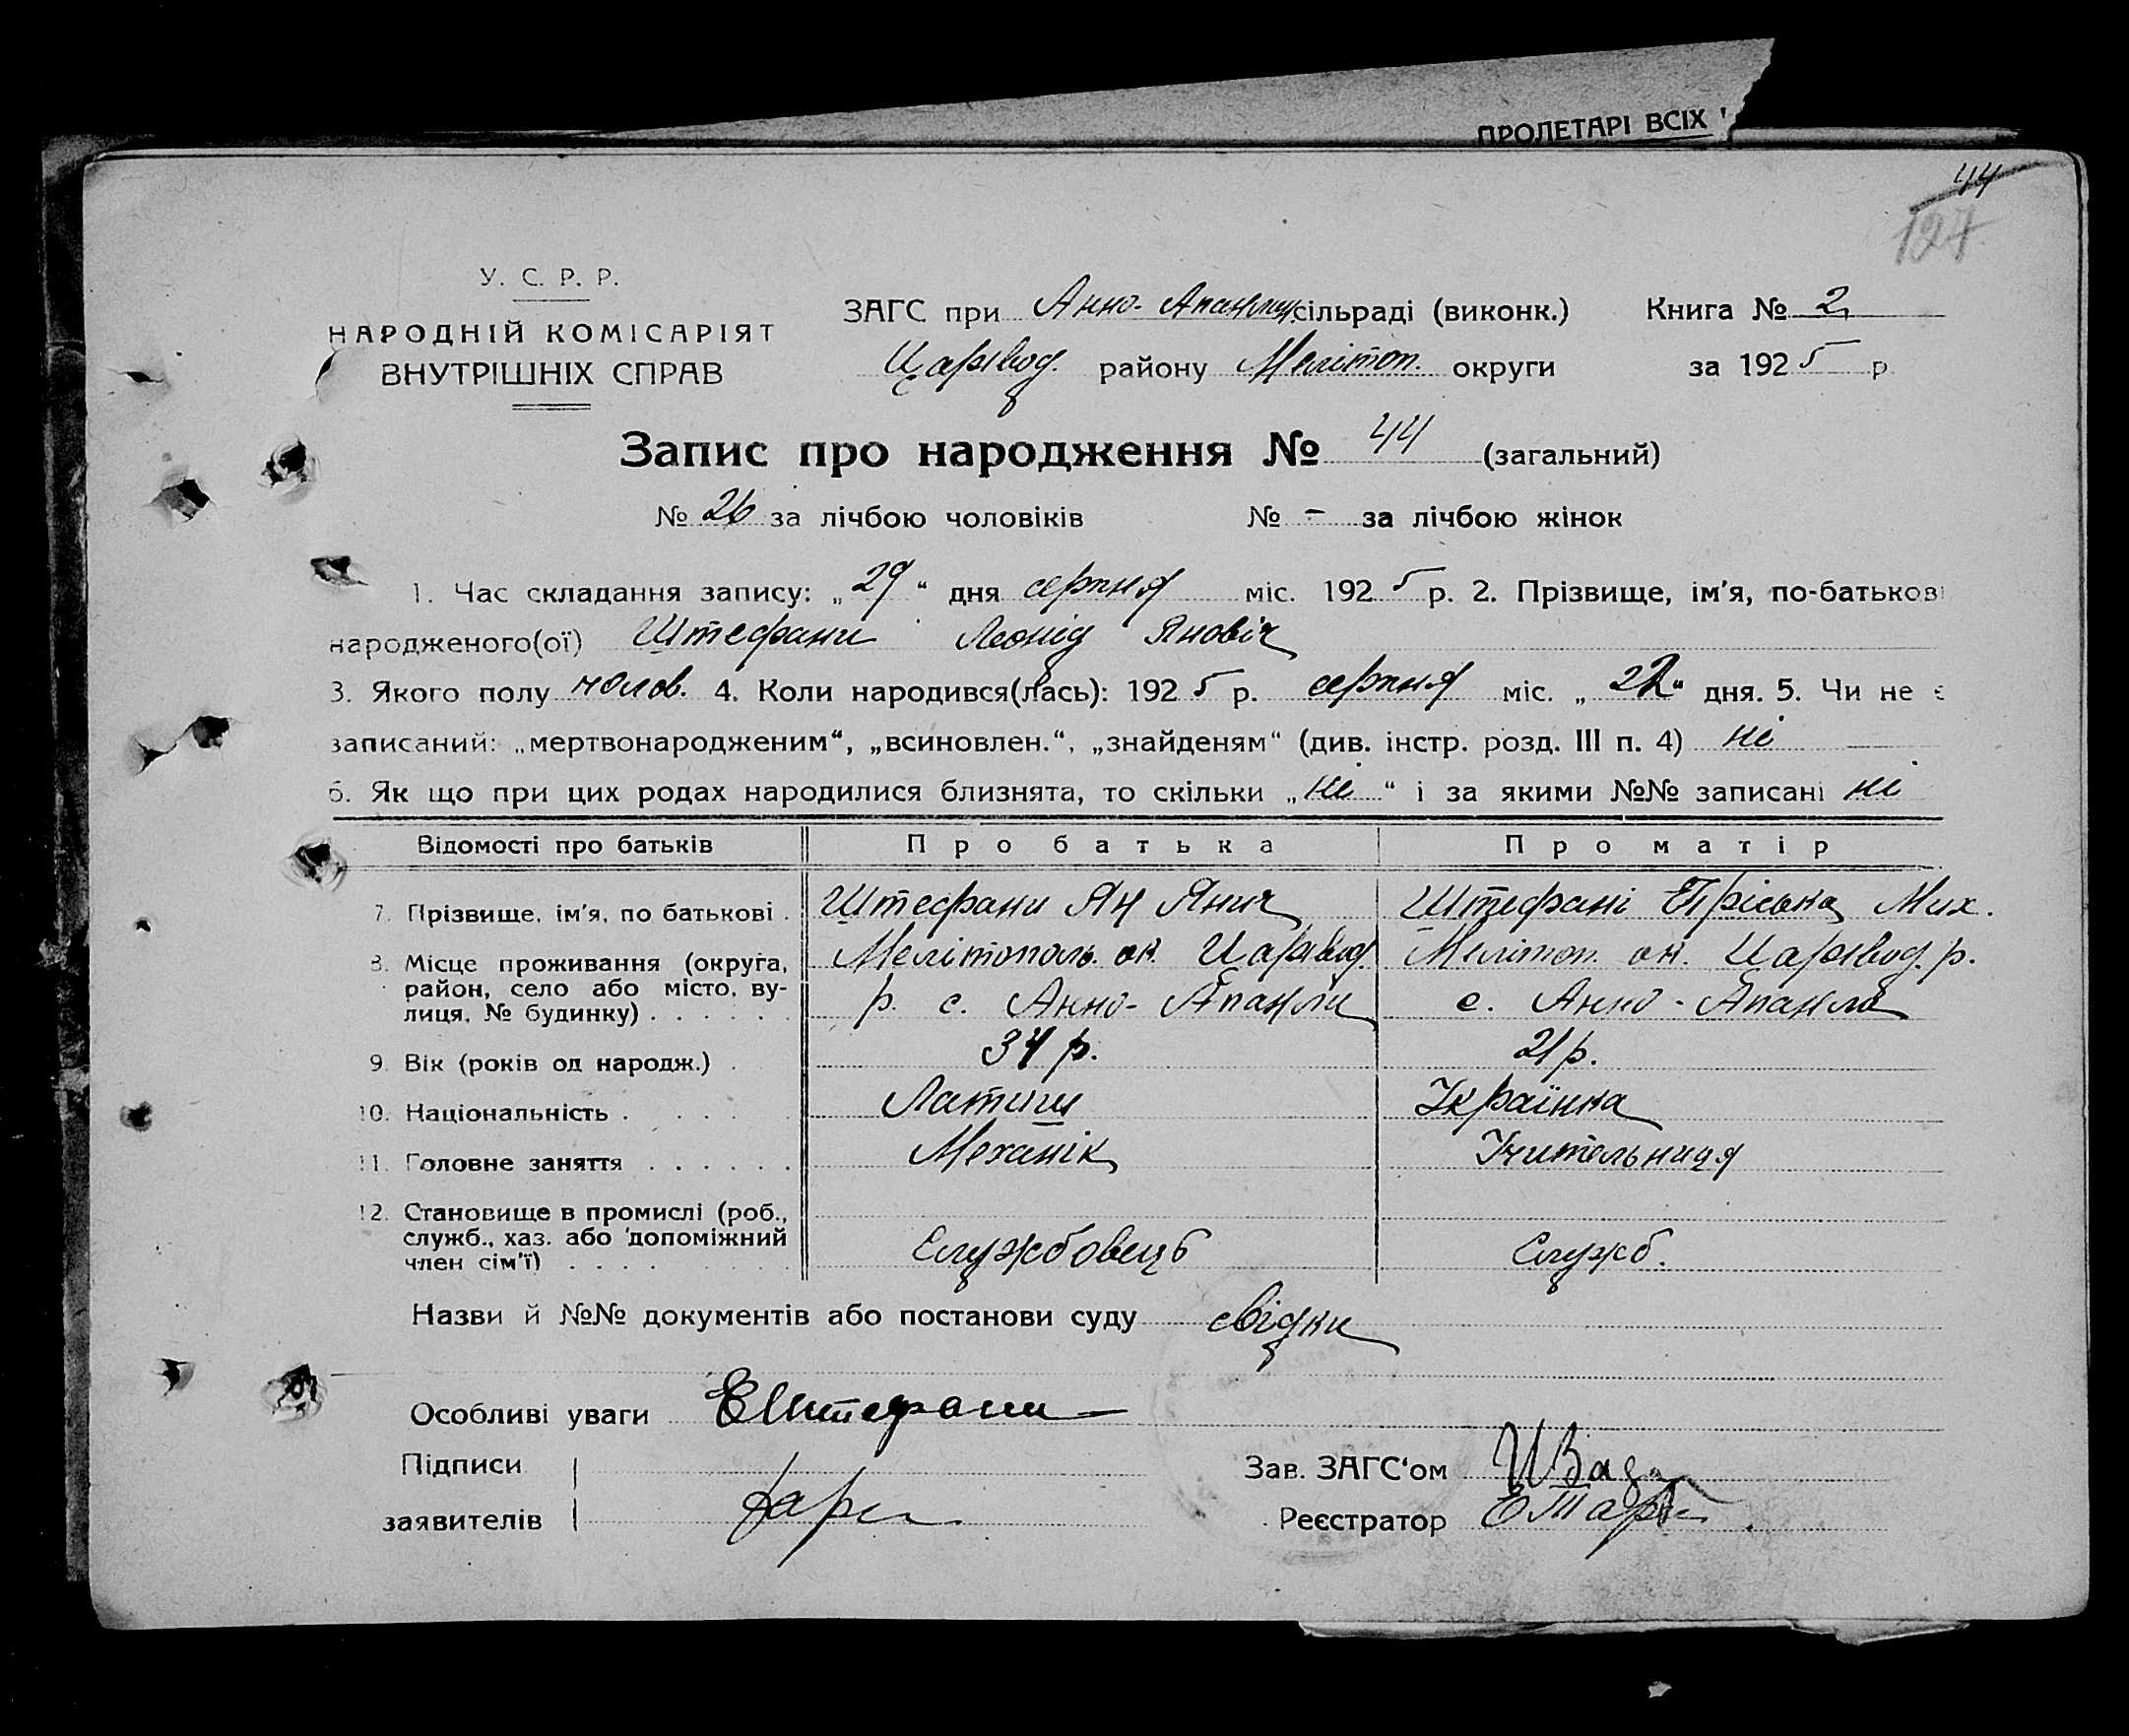 ПРОЛЕТАРІ ВСІХ
44
127
У. С. Р. Р.
НАРОДНІЙ КОМІСАРІЯТ
ВНУТРІШНІХ СПРАВ
ЗАГС при Анно-Апанлин. сільраді (виконк.) Книга № 2
Царівод. району Мелітоп. округи за 1925 р.
Запис про народження № 44 (загальний)
№ 26 за лічбою чоловіків № - за лічбою жінок
1. Час складання запису: „29“ дня серпня міс. 1925 р. 2. Прізвище, ім'я, по-батькові
народженого(ої) Штефани Леонід Яновіч
3. Якого полу чолов. 4. Коли народився(лась): 1925 р. серпня міс. „22“ дня. 5. Чи не є
записаний: „мертвонародженим“, „всиновлен.“, „знайденям“ (див. інстр. розд. III п. 4) ні
6. Як що при цих родах народилися близнята, то скільки „ні“ і за якими №№ записані ні
Відомості про батьків Про батька Про матір
7. Прізвище, ім'я, по батькові . Штефани Ян Янич Штефані Пріська Мих.
8. Місце проживання (округа, район, село або місто, вулиця, № будинку) . . . . . . Мелітополь. ок. Царівод. р. с. Анно-Апанли Мелітоп. ок. Царівод. р. с. Анно-Апанли
9. Вік (років од народж.) . 34 р. 21 р.
10. Національність . . . . Латиш Українка
11. Головне заняття . . . . . . Механік Учительниця
12. Становище в промислі (роб., служб., хаз. або допоміжний член сім'ї) . . . . Службовець Служб.
Назви й №№ документів або постанови суду свідки
Особливі уваги ЕШтефани
Підписи Зав. ЗАГС'ом
заявителів Реєстратор